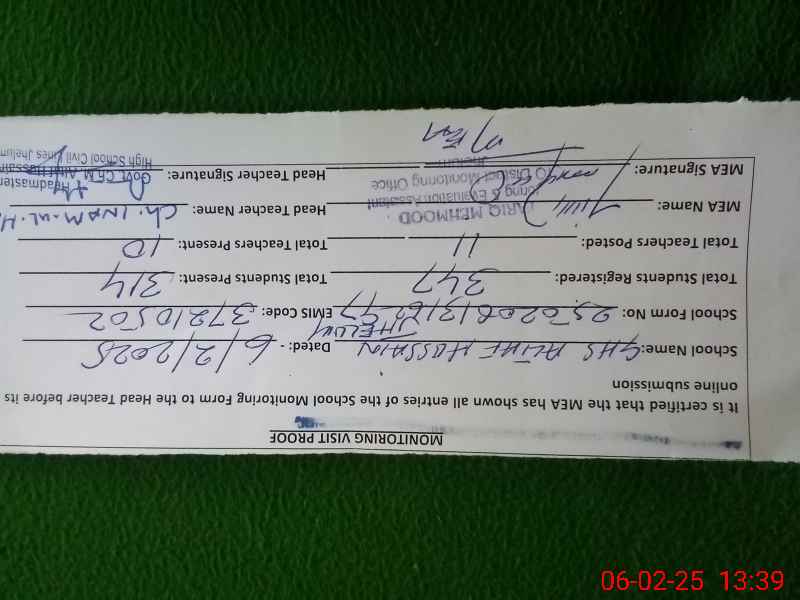 MONITORING VISIT PROOF
It is certified that the MEA has shown all entries of the School Monitoring Form to the Head Teacher before its
online submission
School Name: GHS ALTAF HUSSAIN JHELUM Dated: - 6/2/2025
School Form No: EMIS Code: 37210502
Total Students Registered: 347 Total Students Present: 314
Total Teachers Posted: 11 Total Teachers Present: 10
MEA Name: Head Teacher Name: Ch. INAM-UL-H
TARIQ MEHMOOD
oring & Evaluation Assistant
O District Monitoring Office
Jhelum
MEA Signature: Head Teacher Signature:
Headmaster
Govt. Ch.M. Altaf Hussain
High School Civil Lines Jhelum
06-02-25 13:39